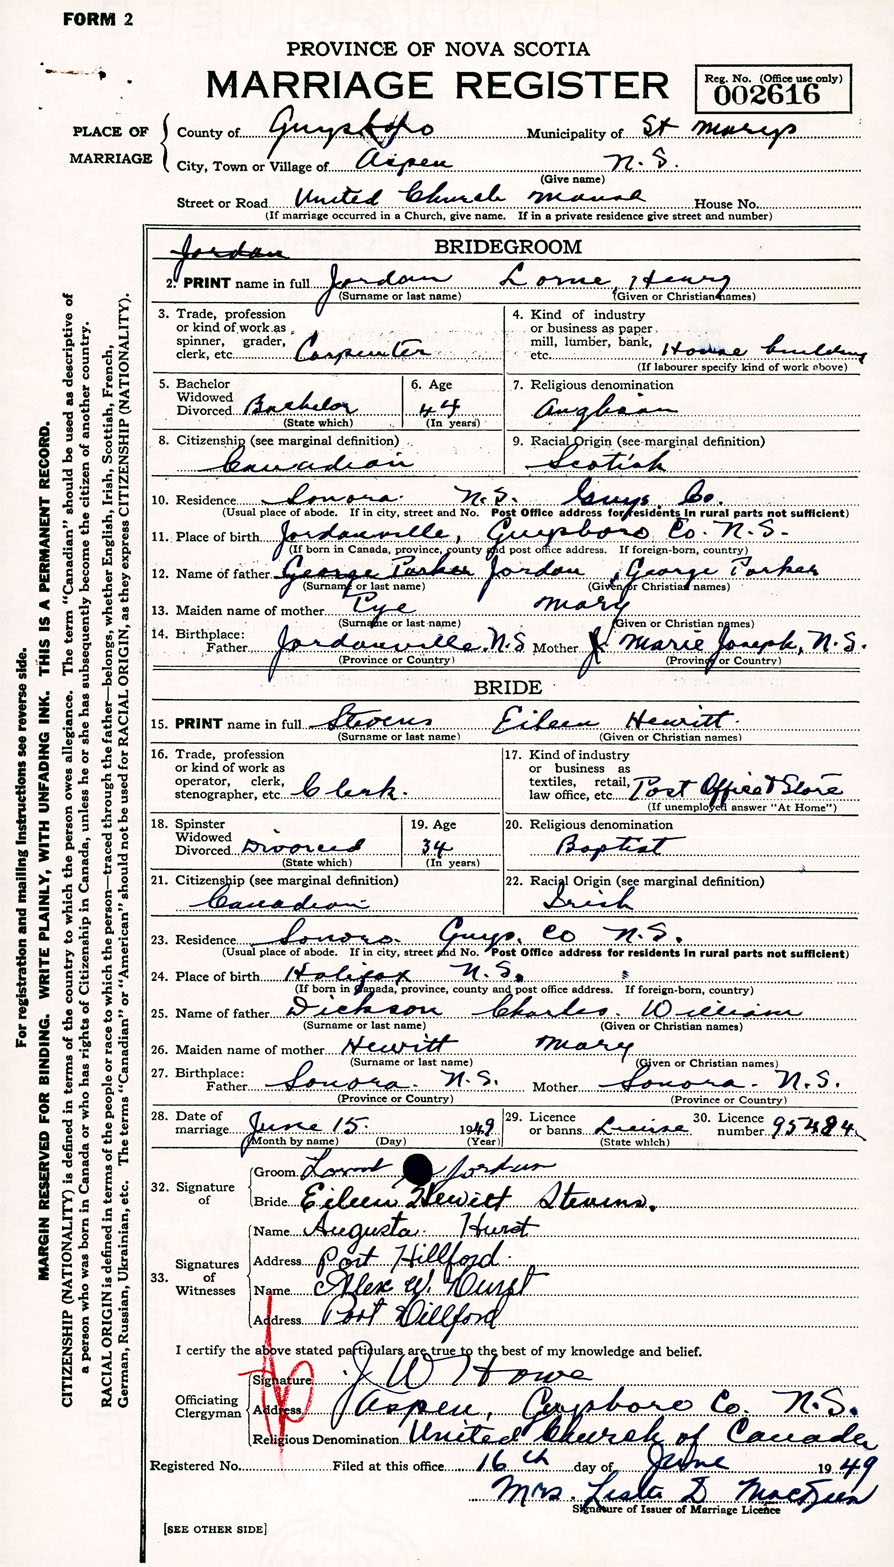 FORM 2
PROVINCE OF NOVA SCOTIA
MARRIAGE REGISTER
Reg. No. (Office use only)
002616
PLACE OF MARRIAGE
County of Guysboro Municipality of St Marys
City, Town or Village of Aspen N.S.
(Give name)
Street or Road United Church Manse House No.
(If marriage occurred in a Church, give name. If in a private residence give street and number)
Jordan
BRIDEGROOM
2. PRINT name in full Jordan Lorne Henry
(Surname or last name) (Given or Christian names)
3. Trade, profession
or kind of work as
spinner, grader,
clerk, etc. Carpenter
4. Kind of industry
or business as paper
mill, lumber, bank,
etc. House building
(If labourer specify kind of work above)
5. Bachelor
Widowed
Divorced Bachelor
(State which)
6. Age
44
(In years)
7. Religious denomination
Anglican
8. Citizenship (see marginal definition)
Canadian
9. Racial Origin (see marginal definition)
Scotish
10. Residence Sonora N.S. Guys. Co.
(Usual place of abode. If in city, street and No. Post Office address for residents in rural parts not sufficient)
11. Place of birth Jordanville, Guysboro Co. N.S.
(If born in Canada, province, county and post office address. If foreign-born, country)
12. Name of father George Parker Jordan George Parker
(Surname or last name) (Given or Christian names)
13. Maiden name of mother Pye Mary
(Surname or last name) (Given or Christian names)
14. Birthplace:
Father Jordanville, N.S. Mother Marie Joseph, N.S.
(Province or Country) (Province or Country)
BRIDE
15. PRINT name in full Stevens Eileen Hewitt
(Surname or last name) (Given or Christian names)
16. Trade, profession
or kind of work as
operator, clerk,
stenographer, etc. Clerk.
17. Kind of industry
or business as
textiles, retail,
law office, etc. Post Office & Store
(If unemployed answer "At Home")
18. Spinster
Widowed
Divorced Divorced
(State which)
19. Age
34
(In years)
20. Religious denomination
Baptist
21. Citizenship (see marginal definition)
Canadian
22. Racial Origin (see marginal definition)
Irish
23. Residence Sonora. Guys. Co N.S.
(Usual place of abode. If in city, street and No. Post Office address for residents in rural parts not sufficient)
24. Place of birth Halifax N.S.
(If born in Canada, province, county and post office address. If foreign-born, country)
25. Name of father Dickson Charles. William
(Surname or last name) (Given or Christian names)
26. Maiden name of mother Hewitt Mary
(Surname or last name) (Given or Christian names)
27. Birthplace:
Father Sonora. N.S. Mother Sonora. N.S.
(Province or Country) (Province or Country)
28. Date of
marriage June 15. 1949
(Month by name) (Day) (Year)
29. Licence
or banns License
(State which)
30. Licence
number 95484
32. Signature of
Groom Jordan
Bride Eileen Hewitt Stevens.
33. Signatures of Witnesses
Name Augusta Hurst
Address Port Hillford.
Name Alex W. Hurst
Address Port Hillford
I certify the above stated particulars are true to the best of my knowledge and belief.
Officiating Clergyman
Signature J W Howe
Address Aspen, Guysboro Co. N.S.
Religious Denomination United Church of Canada
Registered No. Filed at this office 16th day of June 1949
Mrs. Lester D
Signature of Issuer of Marriage Licence
[SEE OTHER SIDE]
For registration and mailing instructions see reverse side.
MARGIN RESERVED FOR BINDING. WRITE PLAINLY, WITH UNFADING INK. THIS IS A PERMANENT RECORD.
CITIZENSHIP (NATIONALITY) is defined in terms of the country to which the person owes allegiance. The term "Canadian" should be used as descriptive of
a person who was born in Canada or who has rights of Citizenship in Canada, unless he or she has subsequently become the citizen of another country.
RACIAL ORIGIN is defined in terms of the people or race to which the person—traced through the father—belongs, whether English, Irish, Scottish, French,
German, Russian, Ukrainian, etc. The terms "Canadian" or "American" should not be used for RACIAL ORIGIN, as they express CITIZENSHIP (NATIONALITY).